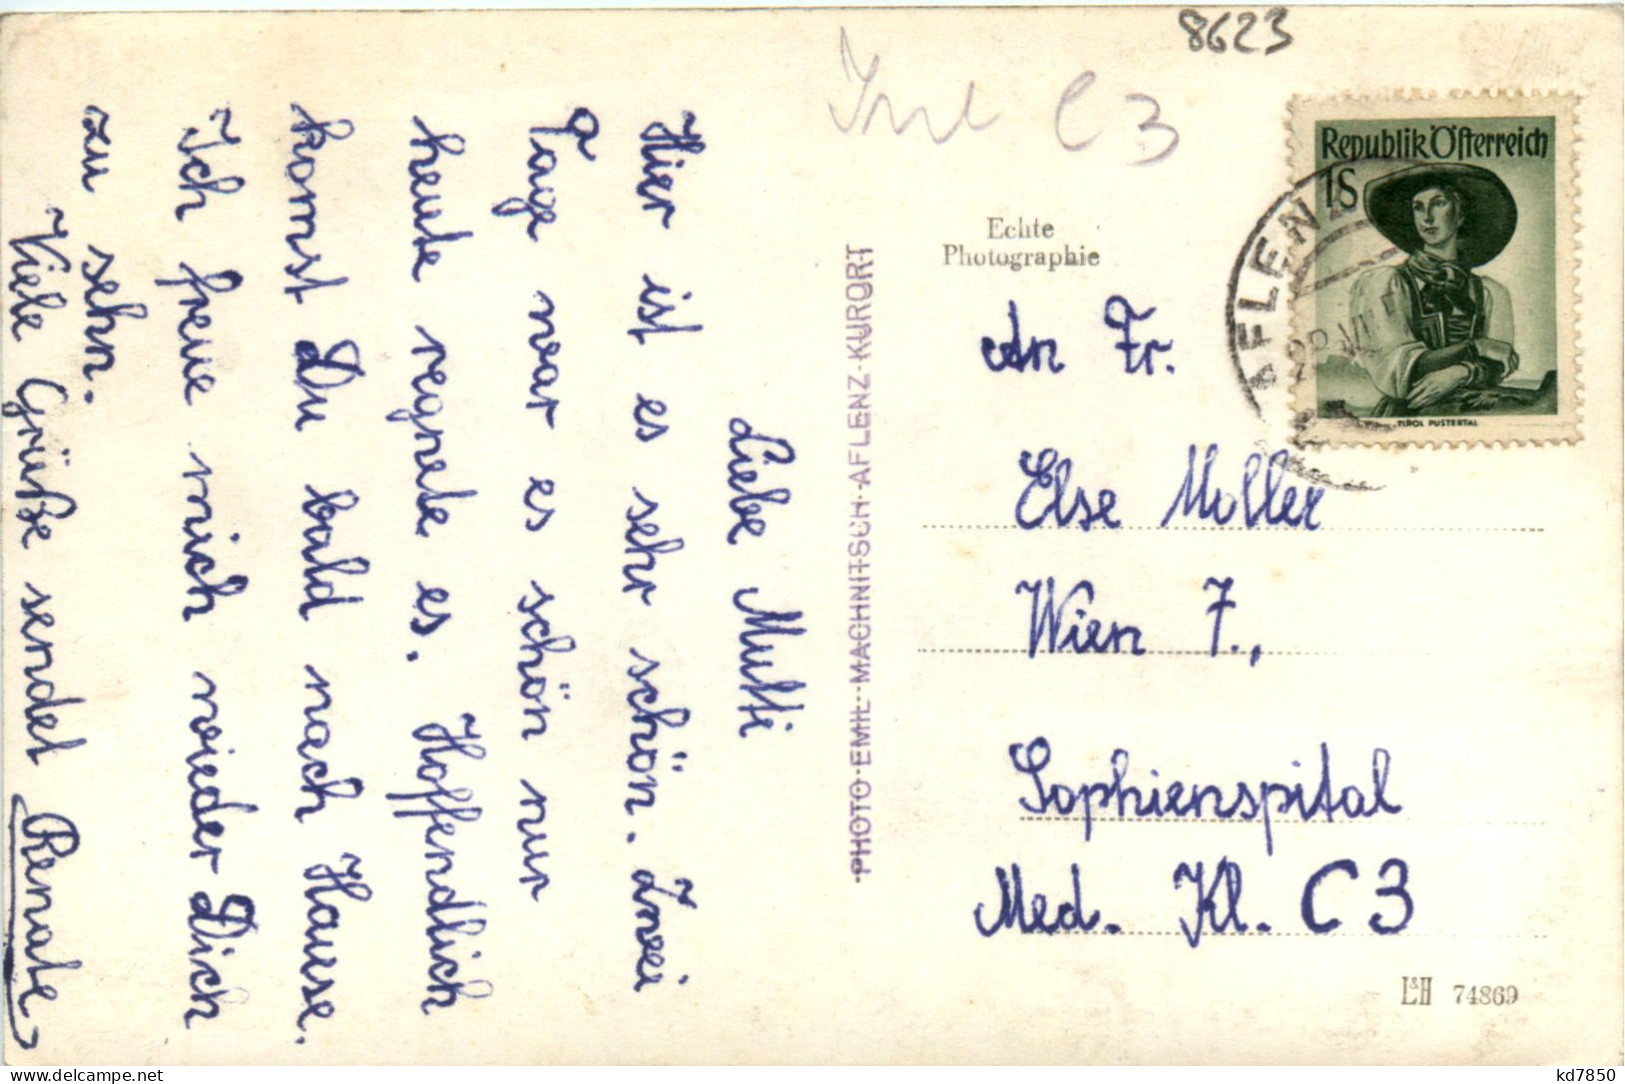 8623
C 3
Republik Österreich
1S
TIROL PUSTERTAL
AFLENZ
Echte
Photographie
Liebe Mutti
Hier ist es sehr schön. Zwei
Tage war es schön nur
heute regnete es. Hoffendlich
komst Du bald nach Hause.
Ich freue mich wieder Dich
zu sehn.
Viele Grüße sendet Renate
PHOTO-EMIL-MACHNITSCH-AFLENZ-KURORT
An Fr.
Else Moller
Wien 7.,
Sophienspital
Med. Kl. C3
L&H 74869
kd7850